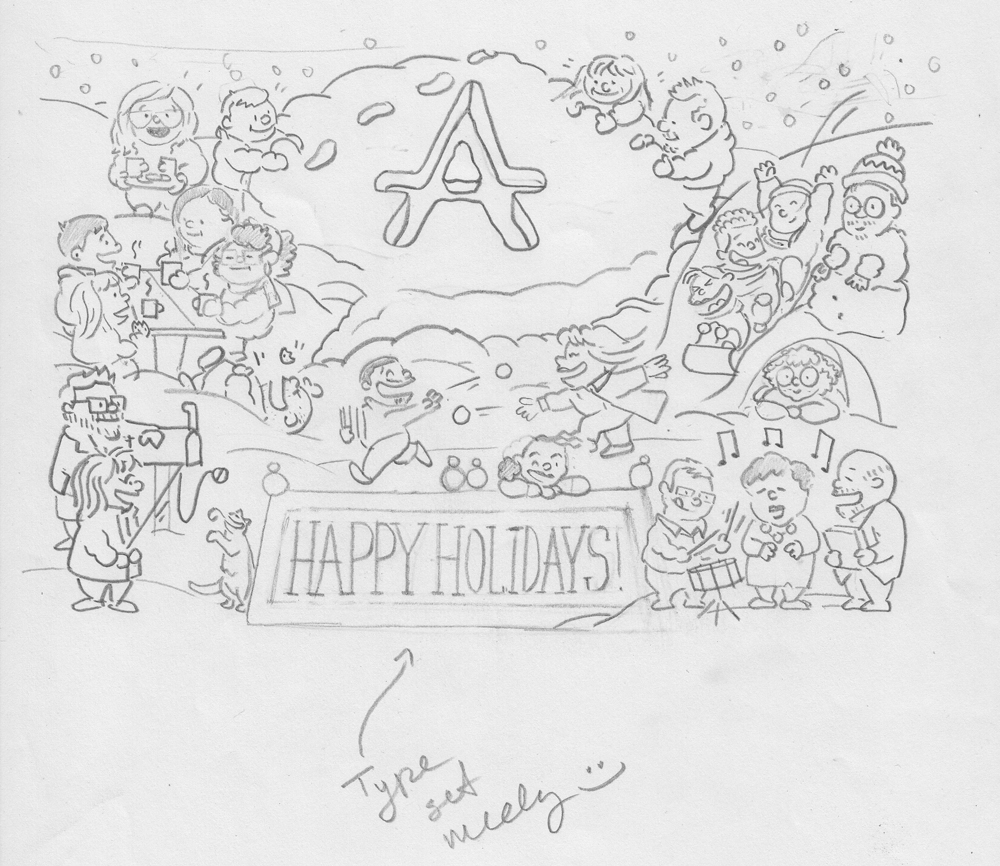 A
HAPPY HOLIDAYS!
Type
set
nicely :)